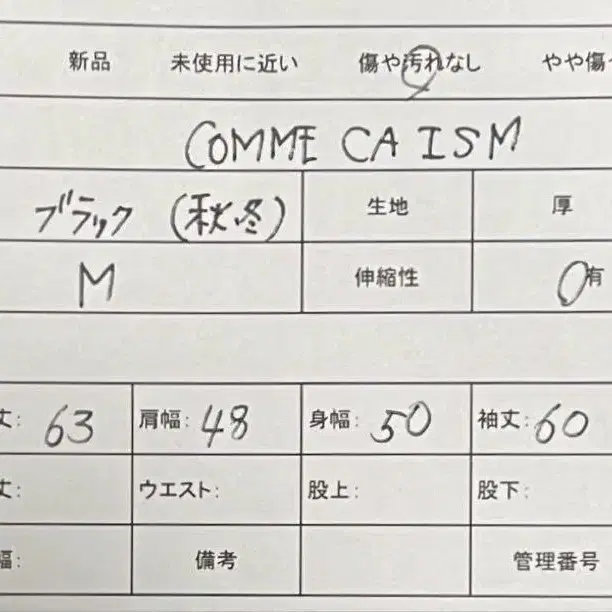 新品 未使用に近い 傷や汚れなし やや傷
COMME CA ISM
ブラック (秋冬) 生地 厚
M 伸縮性 有
丈: 63 肩幅: 48 身幅: 50 袖丈: 60
丈: ウエスト: 股上: 股下:
幅: 備考 管理番号